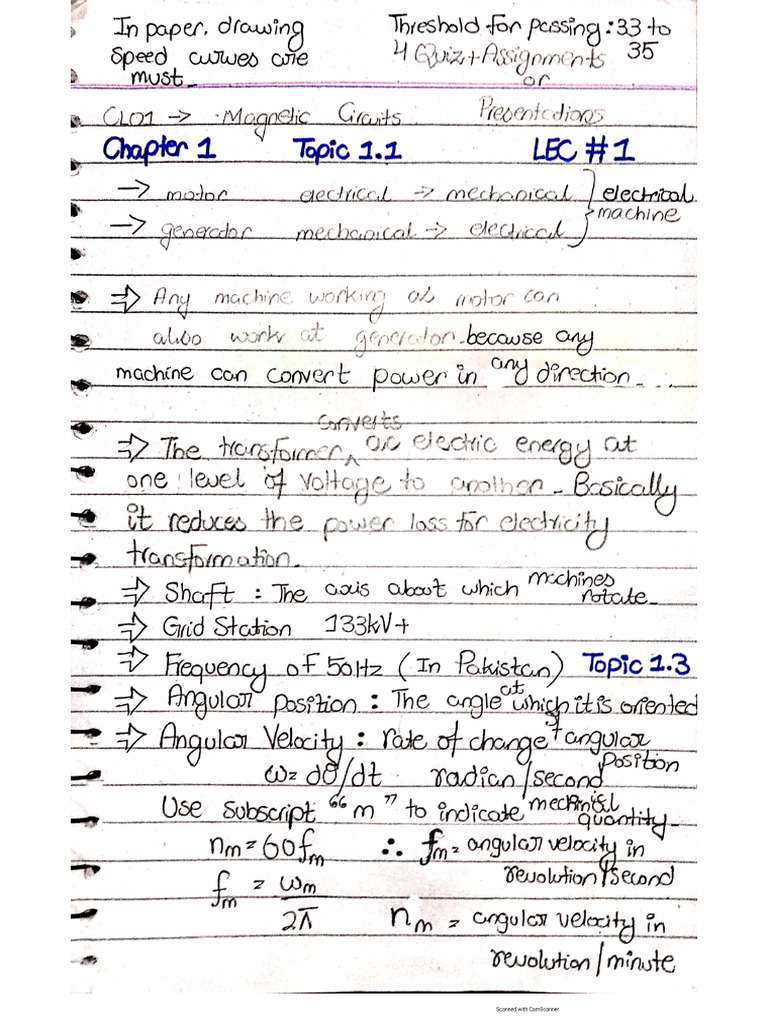 In paper, drawing
speed curves are
must_
Threshold for passing: 33 to
35
4 Quiz + Assignments
or
Presentations
CLO1 → Magnetic Circuits
Chapter 1 Topic 1.1 LEC #1
→ motor electrical → mechanical } electrical
machine
→ generator mechanical → electrical
⇒ Any machine working as motor can
also work at generator. because any
machine can convert power in any direction_ . .
⇒ The transformer ^converts ac electric energy at
one level of voltage to another_ Basically
it reduces the power loss for electricity
transformation_
⇒ Shaft : The axis about which machines
rotate_
⇒ Grid Station 133kV+
⇒ Frequency of 50Hz (In Pakistan) Topic 1.3
⇒ Angular position : The angle at which it is oriented
⇒ Angular Velocity : rate of change of angular
position
ω = dθ/dt radian/second
Use subscript “m” to indicate mechanical
quantity_
nm = 60fm ∴ fm = angular velocity in
revolution/second
fm = ωm
2π
nm = angular velocity in
revolution/minute
Scanned with CamScanner